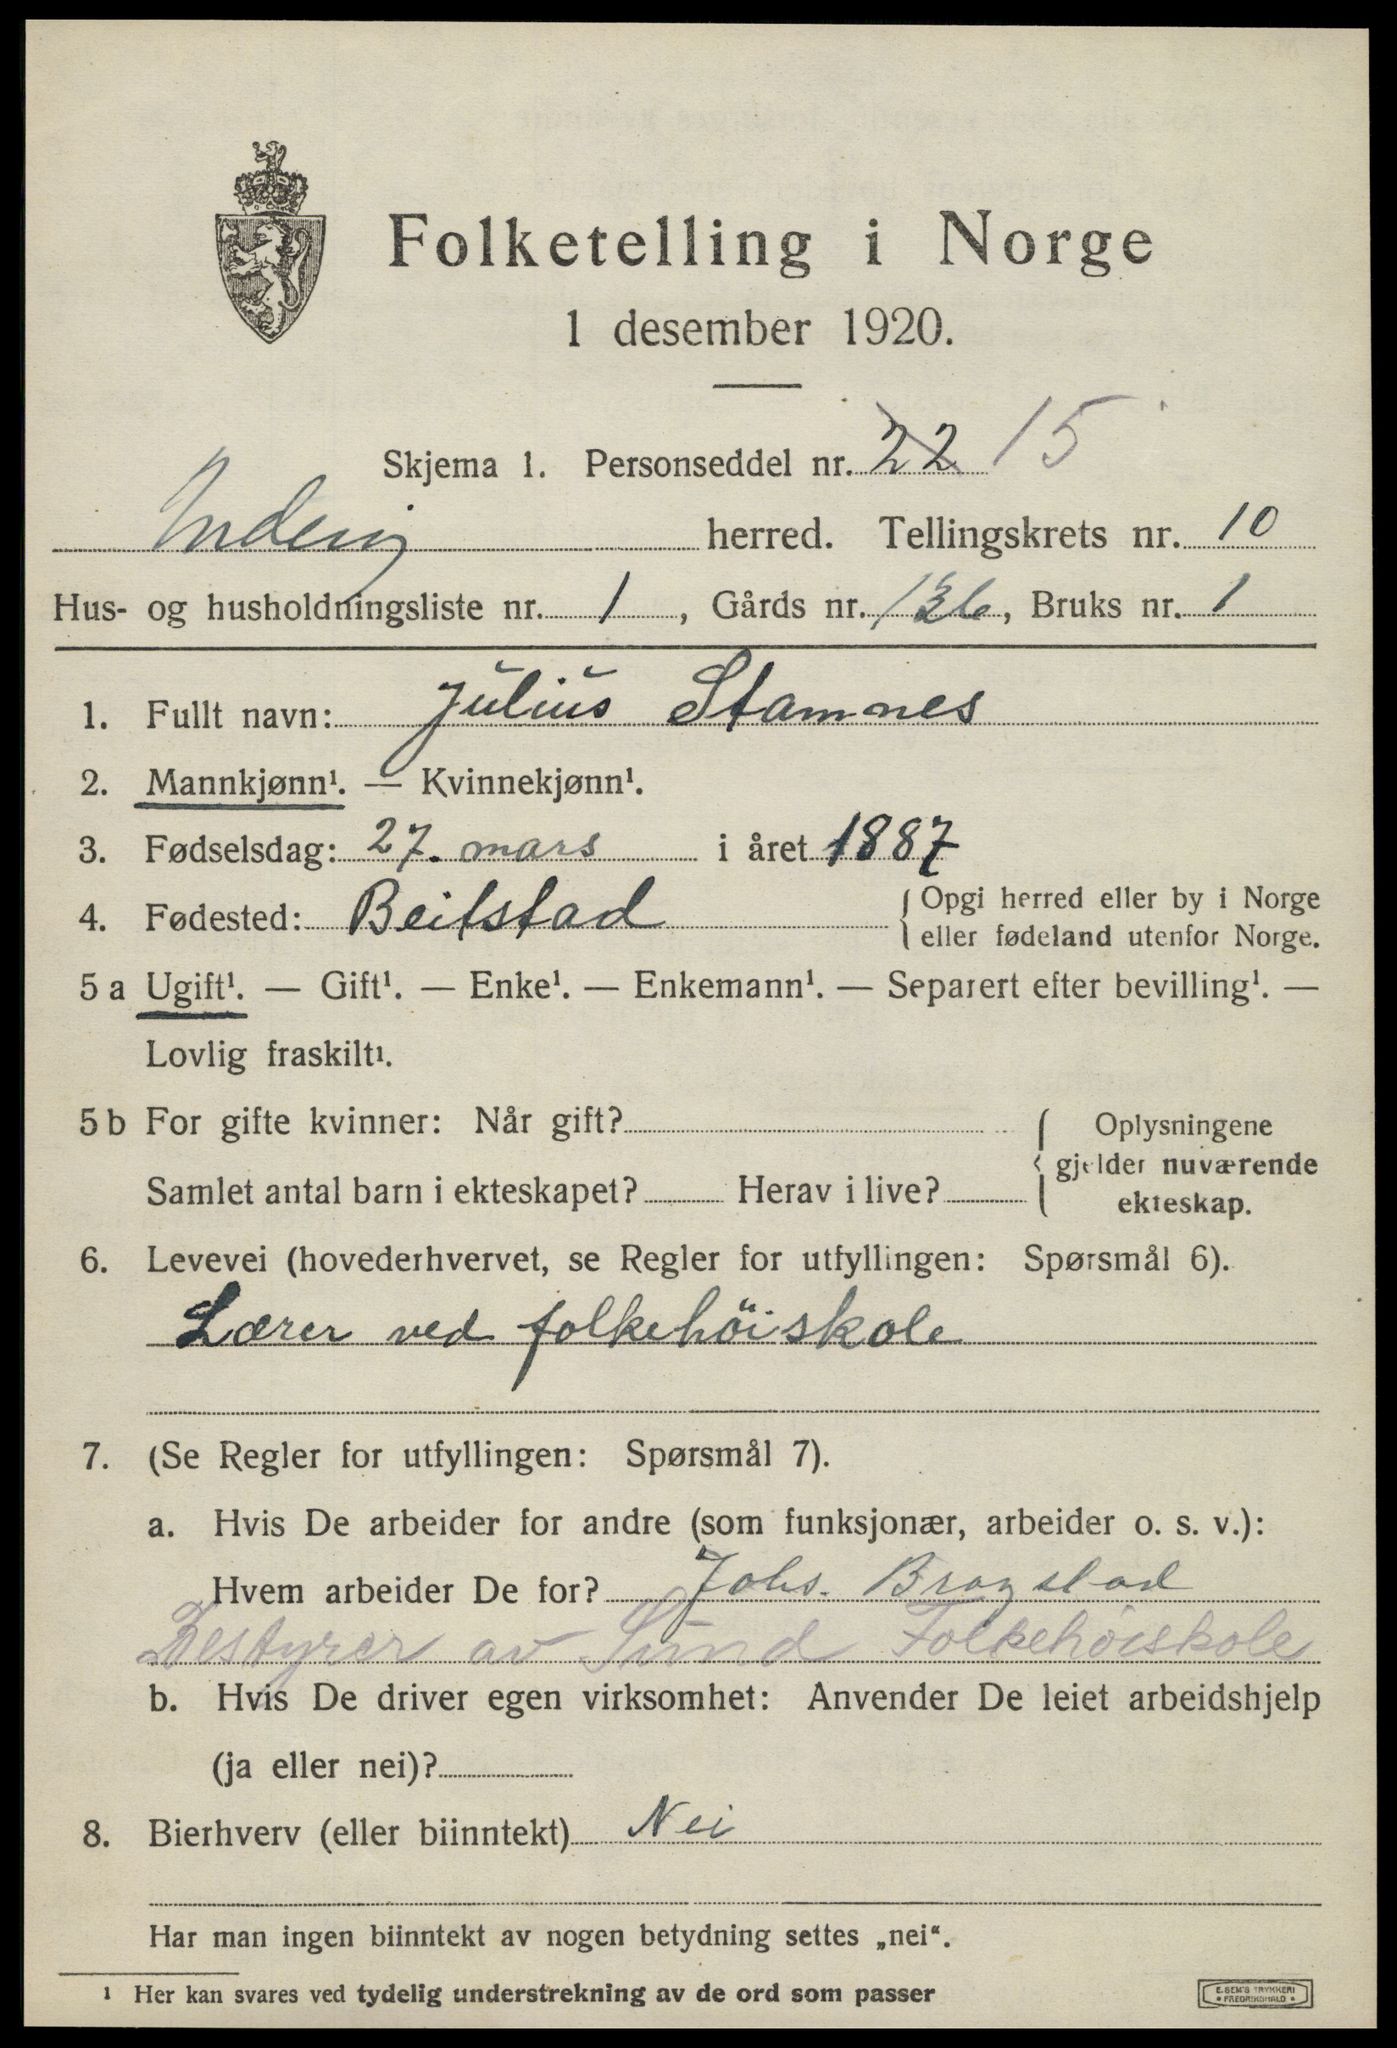 Folketelling i Norge
1 desember 1920.
Skjema 1. Personseddel nr. 22 15
Inderöy herred. Tellingskrets nr. 10
Hus- og husholdningsliste nr. 1, Gårds nr. 136, Bruks nr. 1
1. Fullt navn: Julius Stamnes
2. Mannkjønn¹. — Kvinnekjønn¹.
3. Fødselsdag: 27. mars i året 1887
4. Fødested: Beitstad { Opgi herred eller by i Norge
eller fødeland utenfor Norge.
5 a Ugift¹. — Gift¹. — Enke¹. — Enkemann¹. — Separert efter bevilling¹. —
Lovlig fraskilt¹.
5 b For gifte kvinner: Når gift?
Samlet antal barn i ekteskapet? Herav i live?
{ Oplysningene
gjelder nuværende
ekteskap.
6. Levevei (hovederhvervet, se Regler for utfyllingen: Spørsmål 6).
Lærer ved folkehöiskole
7. (Se Regler for utfyllingen: Spørsmål 7).
a. Hvis De arbeider for andre (som funksjonær, arbeider o. s. v.):
Hvem arbeider De for? Johs. Bragstad
Bestyrer av Sund Folkehöiskole
b. Hvis De driver egen virksomhet: Anvender De leiet arbeidshjelp
(ja eller nei)?
8. Bierhverv (eller biinntekt) Nei
Har man ingen biinntekt av nogen betydning settes „nei“.
¹ Her kan svares ved tydelig understrekning av de ord som passer
E. SEM'S TRYKKERI
• FREDRIKSHALD •